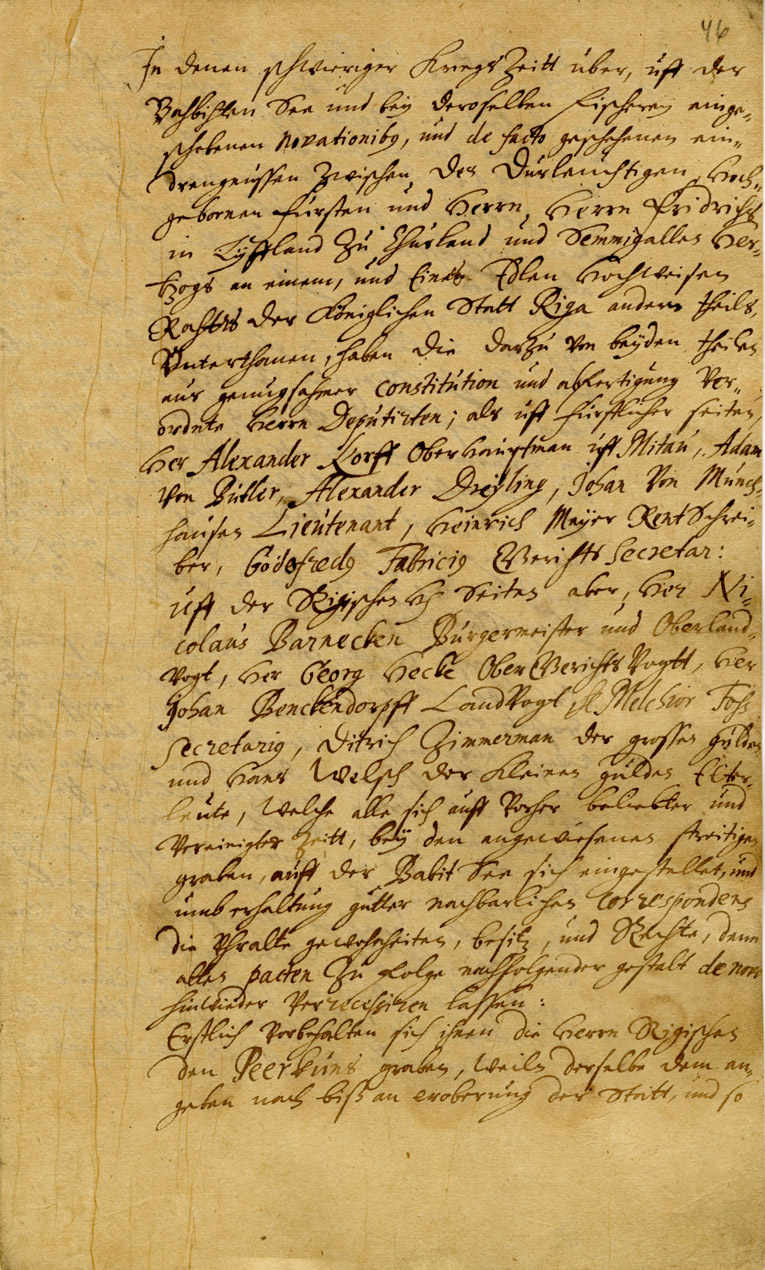 46
In denen schwieriger Kriegs Zeitt über, uff der
Bahbitten See und bey deroselben fischerey einge=
schobenen novationib9, und de facto geschehenen ein=
drengnussen Zwischen Des Durleuchtigen, Hoch=
gebornen fürsten und Herrn, Herrn Fridrichs
in Lyffland Zu Churland und Semmigallen Her=
tzogs an einem, und Eines Edlen Hochweisen
Rahtts der Königlichen Statt Riga anders theils,
Unterthanen, haben die darzu von beyden theilen
aus genugsahmer constitution und abfertigung Ver=
ordnete Herrn Deputirten; als uff fürstlicher seiten,
Her Alexander Korff Oberhauptman uff Mitau, Adam
von Butler, Alexander Dreyling, Johan Von Münch=
hausen Lieutenant, Heinrich Meyer RentSchrei=
ber, Godofred9 Fabrici9 Gerichts Secretar:
uff der Rigischen Seiten aber, Her Ni=
colaus Barnecken Bürgermeister und Oberland=
Vogt, Her Georg Hecke Ober Gerichts Vogtt, Her
Johan Benckendorpff LandVogt, Melchior Foss
Secretari9, Ditrich Zimmerman der grossen gülden
und Hans Welsch der Kleinen gülden Elter=
leute, Welche alle sich auff Vorher beliebter und
Vereinigter Zeitt, bey den angewiesenen streitigen
graben, auff der Babit See sich eingestellet, und
umb erhaltung gutter nachbarlichen Correspondens
die Uhralte gewohnheiten, besitz, und Rechte, denn
alten pacten Zu folge nachfolgender gestalt de novo
hinwieder Verrecessiren lassen:
Erstlich Vorbehalten sich ihnen die Herrn Rigischen
den Peerkuns graben, Weiln derselbe dem an=
geben nach biss an eroberung der Statt, und so